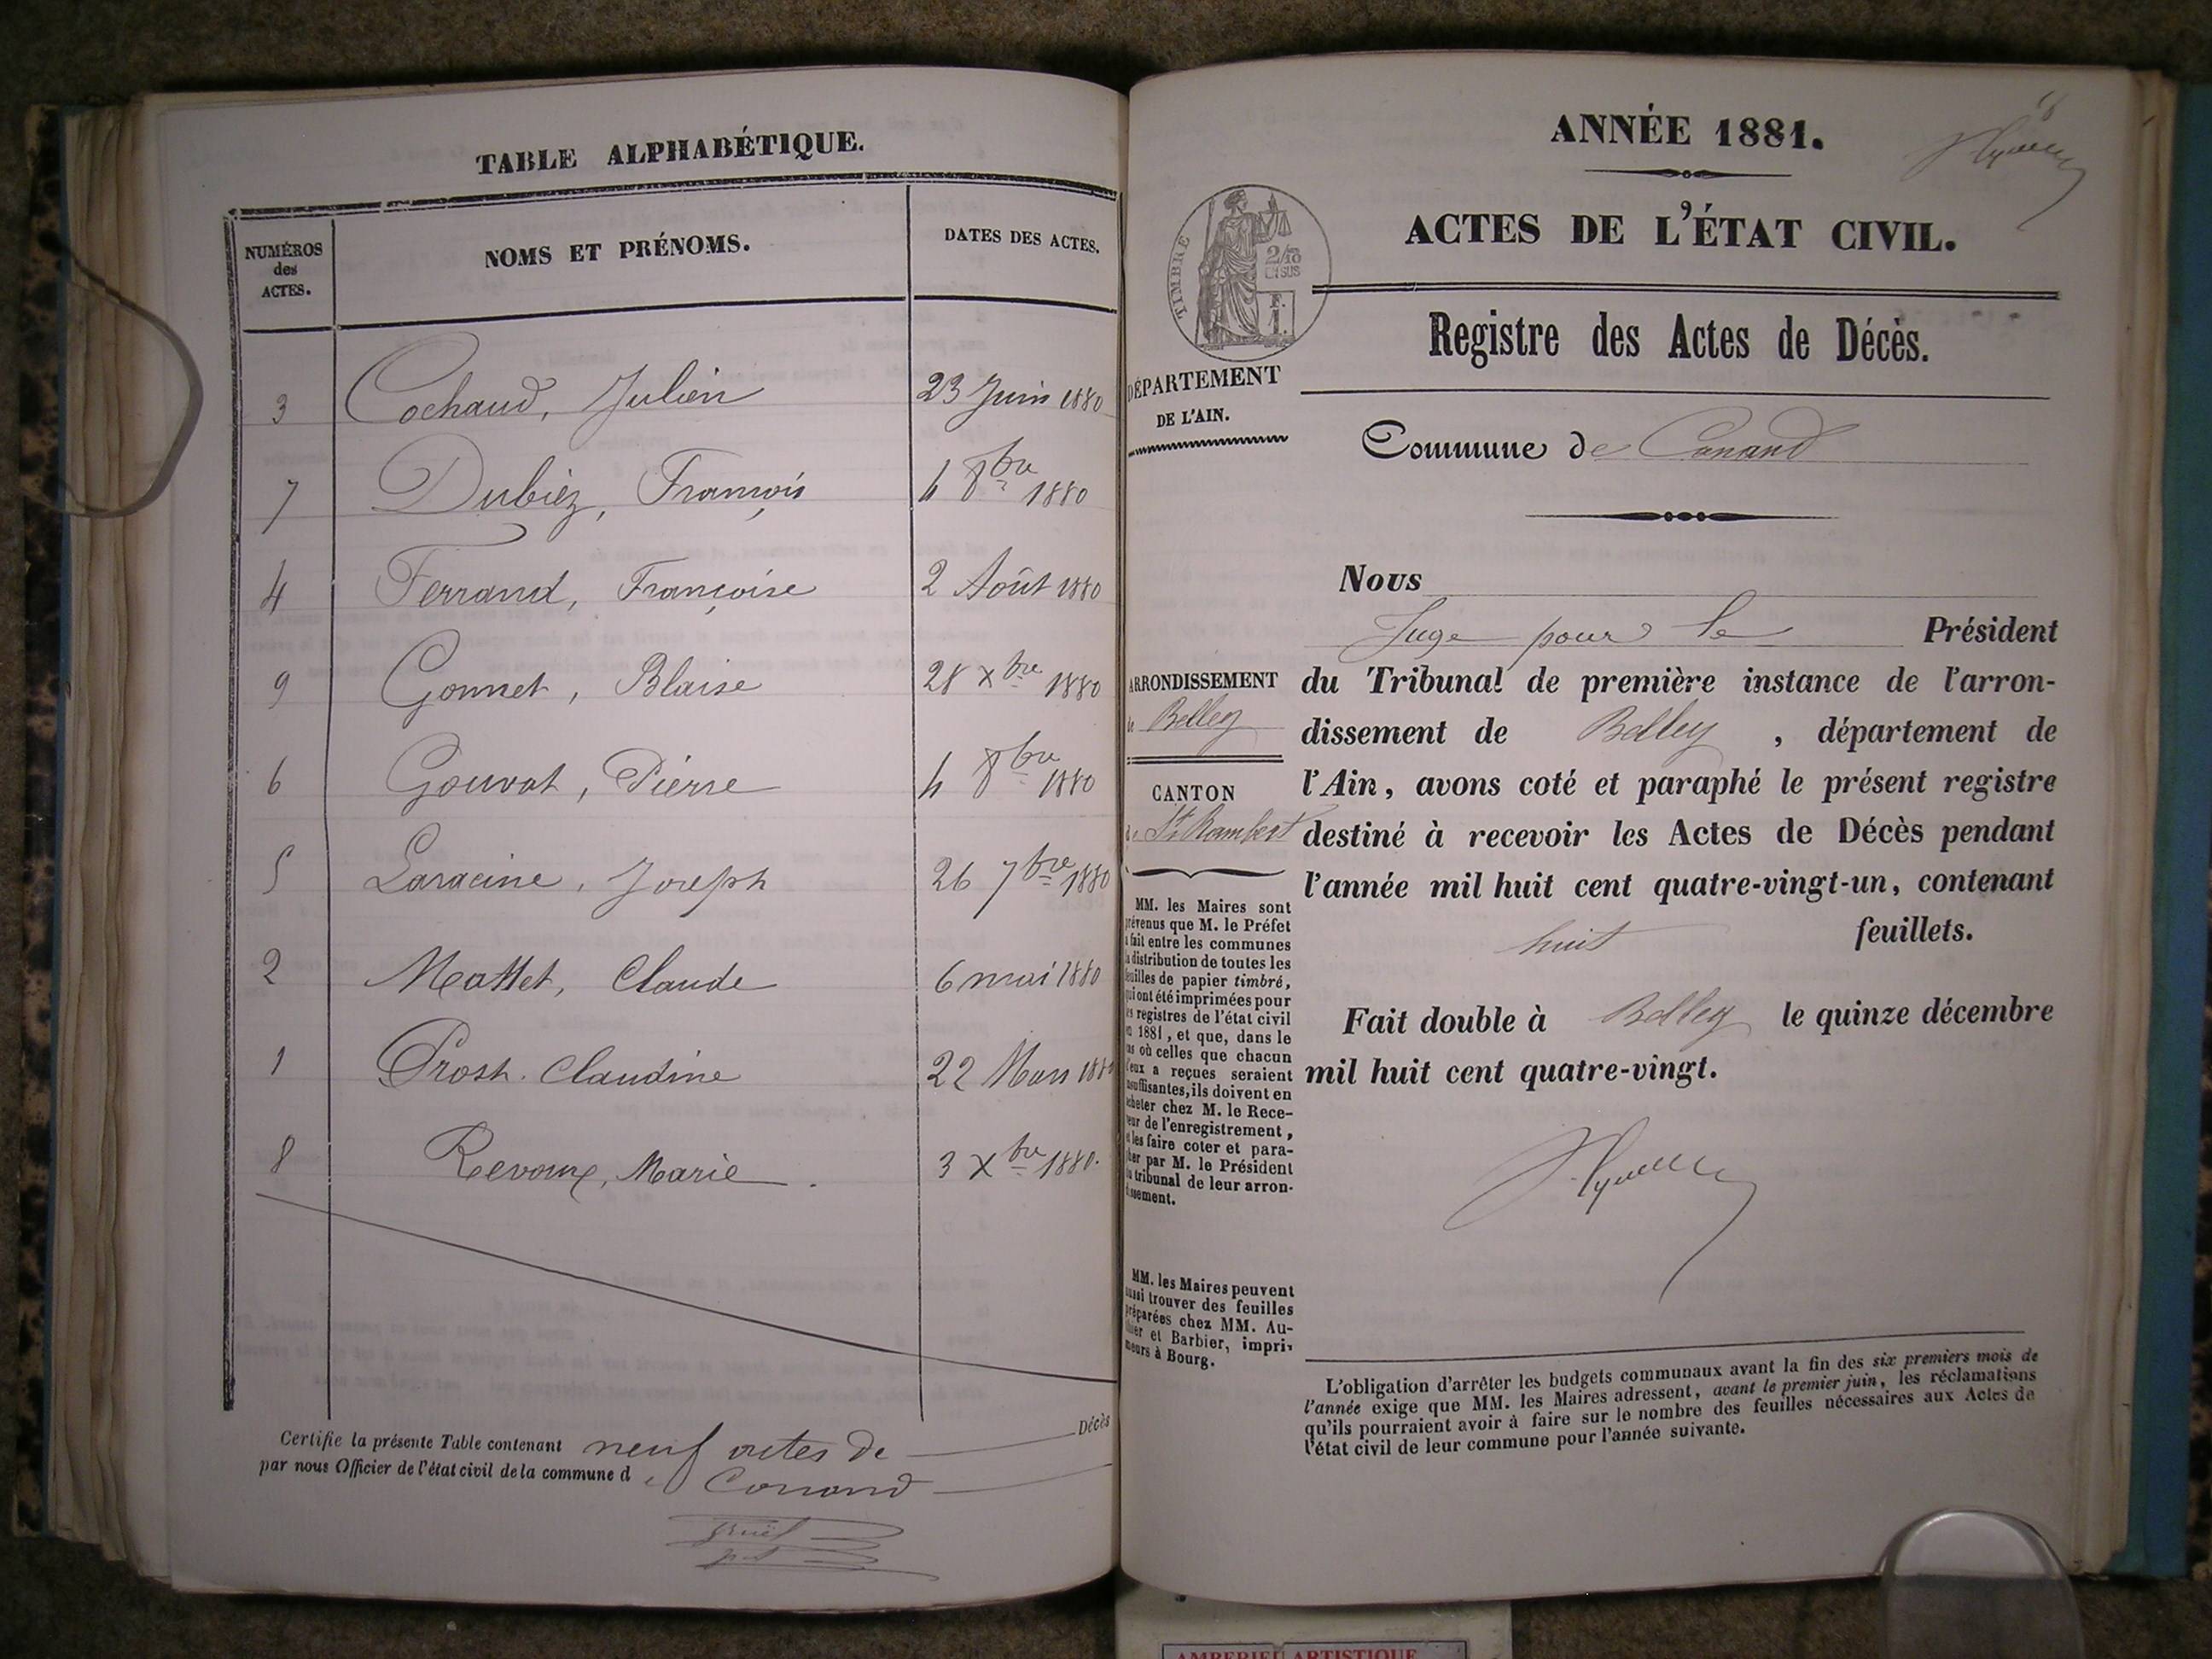 TABLE ALPHABÉTIQUE.
NUMÉROS des ACTES. NOMS ET PRÉNOMS. DATES DES ACTES.
3 Cochaud, Julien 23 Juin 1880
7 Dubiez, François 4 8bre 1880
4 Ferrand, Françoise 2 Août 1880
9 Gonnet, Blaise 28 xbre 1880
6 Gouvat, Pierre 4 8bre 1880
5 Laracine, Joseph 26 7bre 1880
2 Mottet, Claude 6 mai 1880
1 Prost. Claudine 22 Mars 1880
8 Revoux, Marie. 3 Xbre 1880.
Certifie la présente Table contenant neuf actes de Décès
par nous Officier de l'état civil de la commune de Conand
ANNÉE 1881.
ACTES DE L'ÉTAT CIVIL.
TIMBRE
2/10
EN SUS
F.
1.
Registre des Actes de Décès.
DÉPARTEMENT
DE L'AIN.
Commune de Conand
Nous
Juge pour le Président
du Tribunal de première instance de l'arron-
dissement de Belley, département de
l'Ain, avons coté et paraphé le présent registre
destiné à recevoir les Actes de Décès pendant
l'année mil huit cent quatre-vingt-un, contenant
huit feuillets.
Fait double à Belley le quinze décembre
mil huit cent quatre-vingt.
ARRONDISSEMENT
de Belley
CANTON
de St Rambert
MM. les Maires sont
prévenus que M. le Préfet
a fait entre les communes
la distribution de toutes les
feuilles de papier timbré,
qui ont été imprimées pour
les registres de l'état civil
en 1881, et que, dans le
cas où celles que chacun
d'eux a reçues seraient
insuffisantes, ils doivent en
acheter chez M. le Rece-
veur de l'enregistrement,
et les faire coter et para-
pher par M. le Président
du tribunal de leur arron-
dissement.
MM. les Maires peuvent
aussi trouver des feuilles
préparées chez MM. Au-
thier et Barbier, impri-
meurs à Bourg.
L'obligation d'arrêter les budgets communaux avant la fin des six premiers mois de
l'année exige que MM. les Maires adressent, avant le premier juin, les réclamations
qu'ils pourraient avoir à faire sur le nombre des feuilles nécessaires aux Actes de
l'état civil de leur commune pour l'année suivante.
AMBERIEU ARTISTIQUE